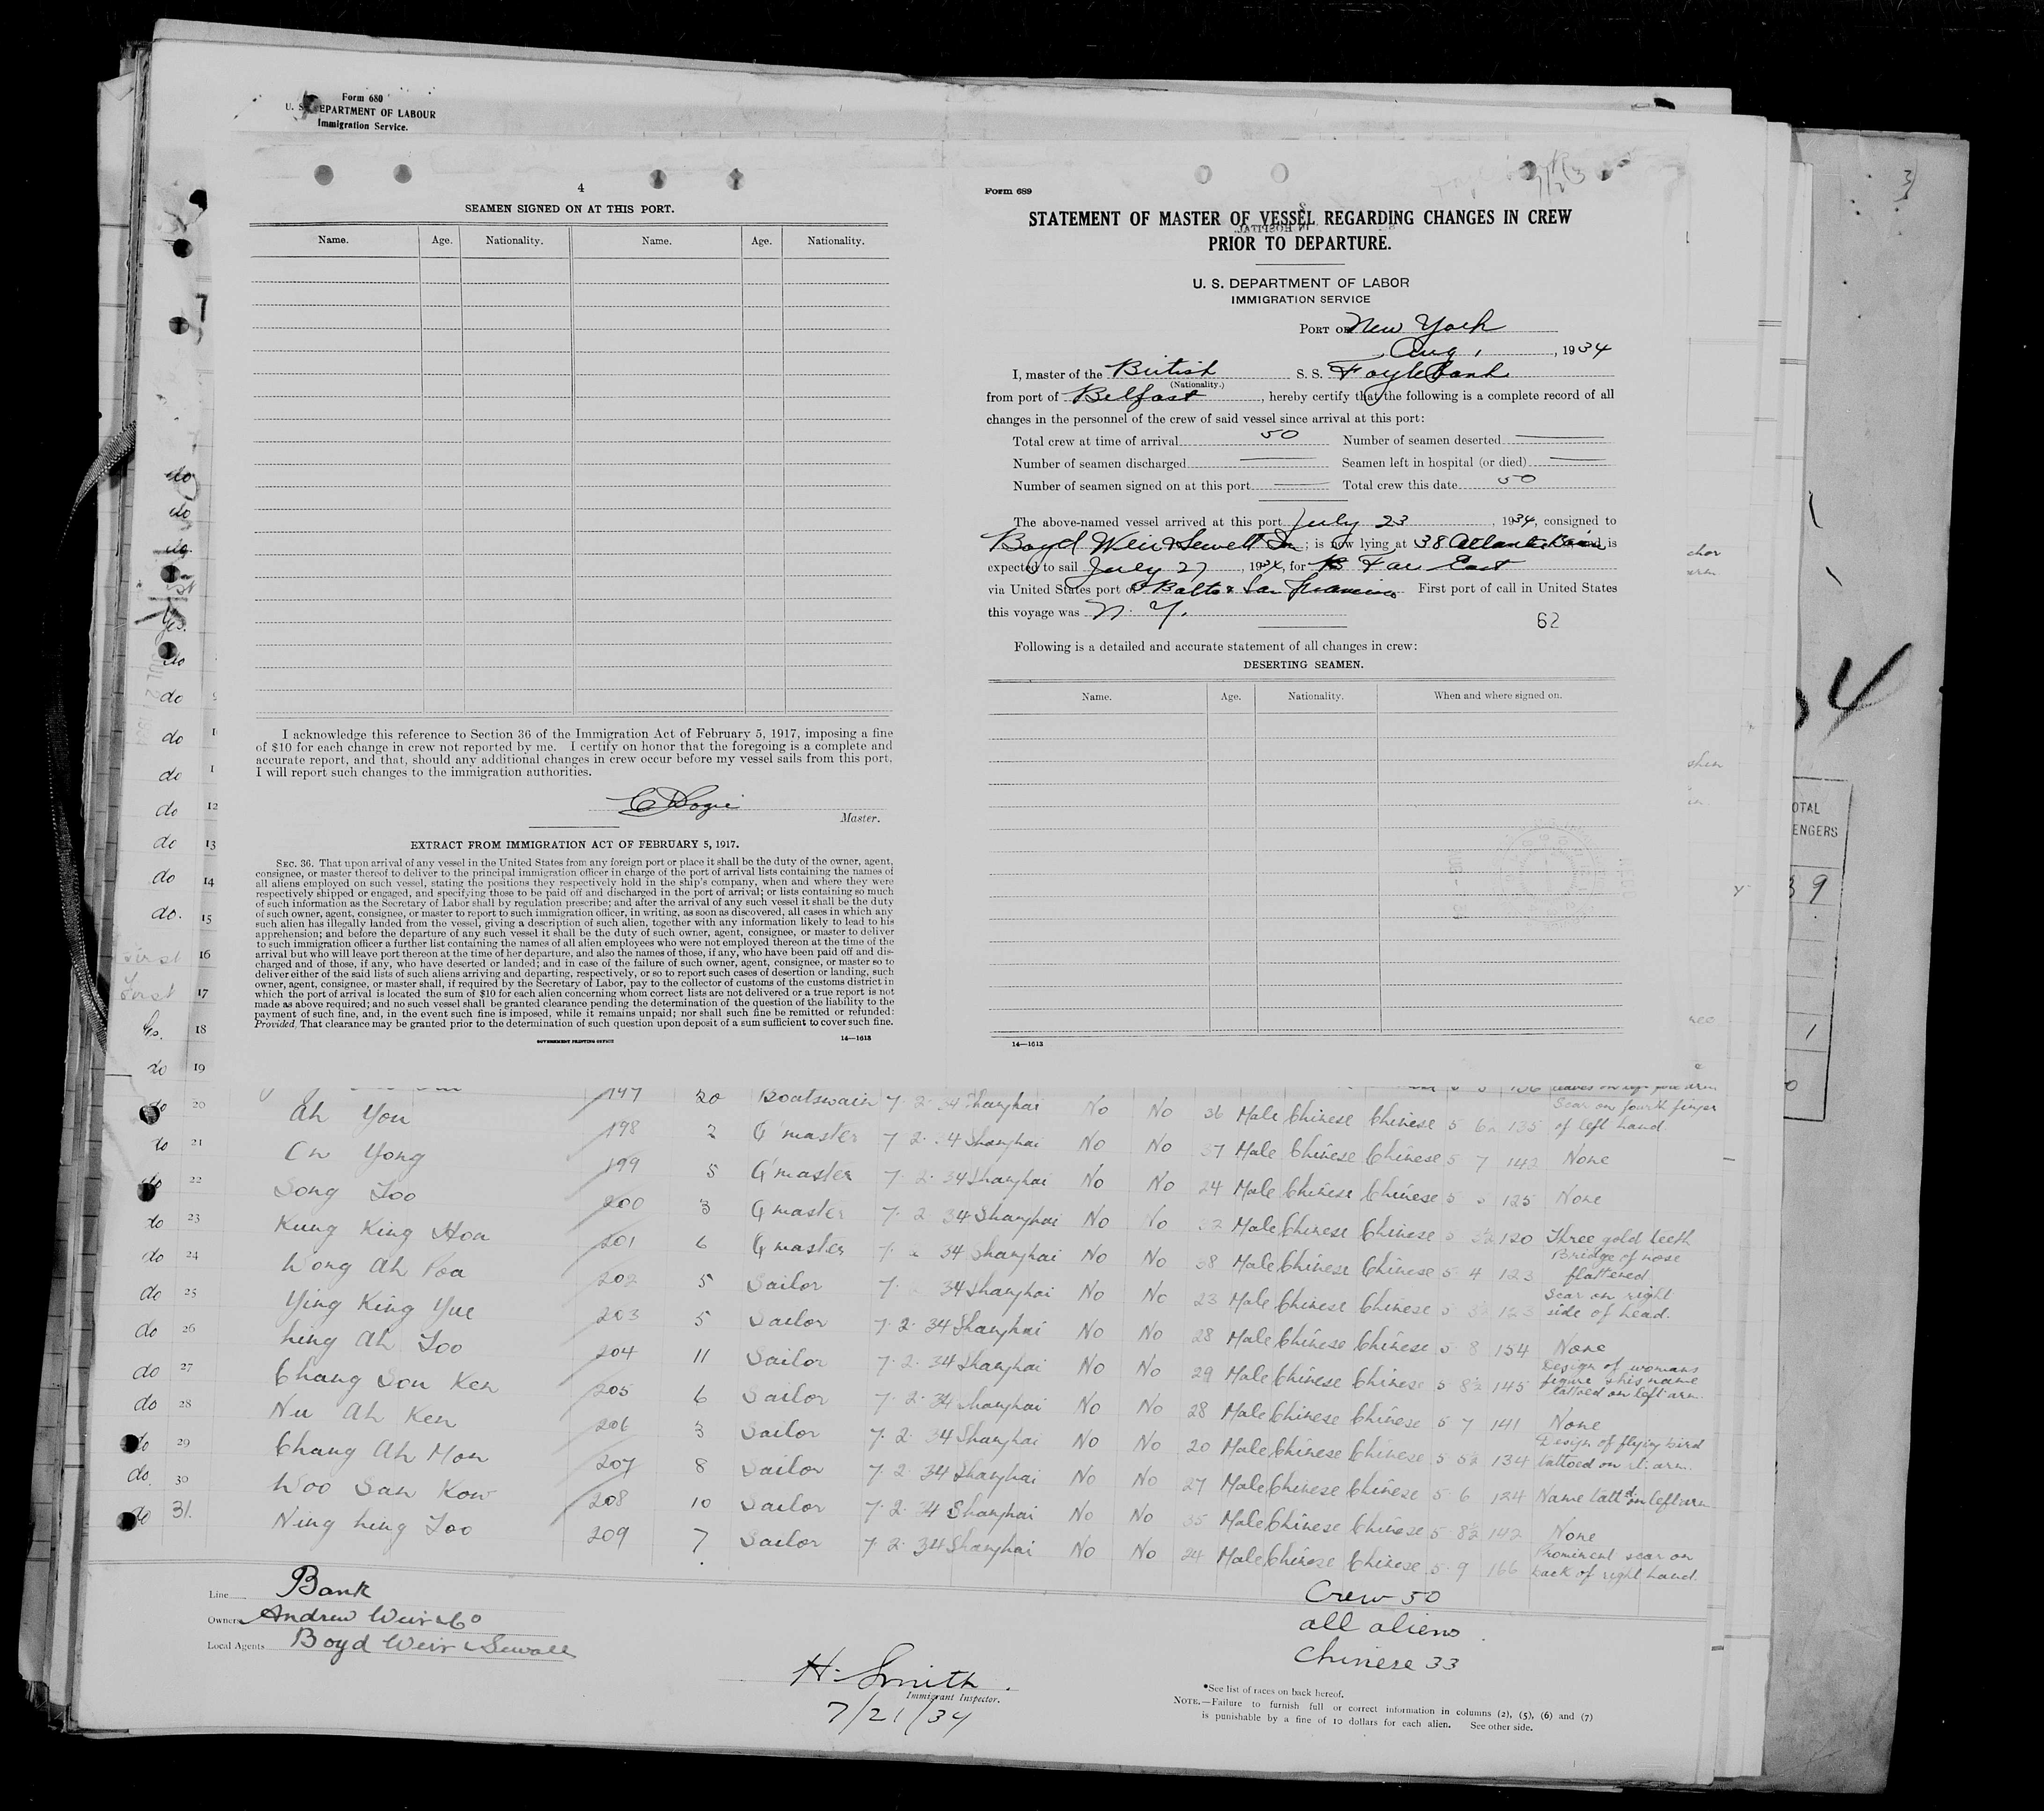 Form 680
U. S. DEPARTMENT OF LABOUR
Immigration Service.
4
SEAMEN SIGNED ON AT THIS PORT.
Name. Age. Nationality. Name. Age. Nationality.
I acknowledge this reference to Section 36 of the Immigration Act of February 5, 1917, imposing a fine
of $10 for each change in crew not reported by me. I certify on honor that the foregoing is a complete and
accurate report, and that, should any additional changes in crew occur before my vessel sails from this port,
I will report such changes to the immigration authorities.
Master.
EXTRACT FROM IMMIGRATION ACT OF FEBRUARY 5, 1917.
SEC. 36. That upon arrival of any vessel in the United States from any foreign port or place it shall be the duty of the owner, agent,
consignee, or master thereof to deliver to the principal immigration officer in charge of the port of arrival lists containing the names of
all aliens employed on such vessel, stating the positions they respectively hold in the ship's company, when and where they were
respectively shipped or engaged, and specifying those to be paid off and discharged in the port of arrival; or lists containing so much
of such information as the Secretary of Labor shall by regulation prescribe; and after the arrival of any such vessel it shall be the duty
of such owner, agent, consignee, or master to report to such immigration officer, in writing, as soon as discovered, all cases in which any
such alien has illegally landed from the vessel, giving a description of such alien, together with any information likely to lead to his
apprehension; and before the departure of any such vessel it shall be the duty of such owner, agent, consignee, or master to deliver
to such immigration officer a further list containing the names of all alien employees who were not employed thereon at the time of the
arrival but who will leave port thereon at the time of her departure, and also the names of those, if any, who have been paid off and dis-
charged and of those, if any, who have deserted or landed; and in case of the failure of such owner, agent, consignee, or master so to
deliver either of the said lists of such aliens arriving and departing, respectively, or so to report such cases of desertion or landing, such
owner, agent, consignee, or master shall, if required by the Secretary of Labor, pay to the collector of customs of the customs district in
which the port of arrival is located the sum of $10 for each alien concerning whom correct lists are not delivered or a true report is not
made as above required; and no such vessel shall be granted clearance pending the determination of the question of the liability to the
payment of such fine, and, in the event such fine is imposed, while it remains unpaid; nor shall such fine be remitted or refunded:
Provided, That clearance may be granted prior to the determination of such question upon deposit of a sum sufficient to cover such fine.
GOVERNMENT PRINTING OFFICE 14—1613
Form 689
STATEMENT OF MASTER OF VESSEL REGARDING CHANGES IN CREW
PRIOR TO DEPARTURE.
U. S. DEPARTMENT OF LABOR
IMMIGRATION SERVICE
PORT OF New York
Aug 1, 1934
I, master of the British S. S. Foylebank
(Nationality.)
from port of Belfast, hereby certify that the following is a complete record of all
changes in the personnel of the crew of said vessel since arrival at this port:
Total crew at time of arrival 50 Number of seamen deserted —
Number of seamen discharged — Seamen left in hospital (or died) —
Number of seamen signed on at this port — Total crew this date 50
The above-named vessel arrived at this port July 23, 1934, consigned to
Boyd Weir & Sewell Inc; is now lying at 38 Atlantic Basin and is
expected to sail July 27, 1934, for Far East
via United States port of Balto & San Francisco First port of call in United States
this voyage was N. Y.
62
Following is a detailed and accurate statement of all changes in crew:
DESERTING SEAMEN.
Name. Age. Nationality. When and where signed on.
14—1613
197 20 Boatswain 7 2 34 Shanghai No No 36 Male Chinese Chinese 5 6½ 135 Scar on fourth finger of left hand
do 20 Ah You 198 2 Q'master 7 2 34 Shanghai No No 37 Male Chinese Chinese 5 7 142 None
do 21 Yong 199 5 Q'master 7 2 34 Shanghai No No 24 Male Chinese Chinese 5 125 None
do 22 Song Too 200 3 Q master 7 2 34 Shanghai No No 32 Male Chinese Chinese 5 3½ 120 Three gold teeth
do 23 Kung King Hoa 201 6 Q master 7 34 Shanghai No No 38 Male Chinese Chinese 5 4 123 Bridge of nose flattened
do 24 Wong Ah Poa 202 5 Sailor 7 34 Shanghai No No 23 Male Chinese Chinese 5 3½ 123 Scar on right side of head.
do 25 Ying King Yue 203 5 Sailor 7 2 34 Shanghai No No 28 Male Chinese Chinese 5 8 154 None
do 26 Ah Too 204 11 Sailor 7 2 34 Shanghai No No 29 Male Chinese Chinese 5 8½ 145 Design of womans figure & his name tattoed on left arm
do 27 Chang Sou Ken 205 6 Sailor 7 2 34 Shanghai No No 28 Male Chinese Chinese 5 7 141 None
do 28 Nu Ah Ken 206 3 Sailor 7 2 34 Shanghai No No 20 Male Chinese Chinese 5 5½ 134 Design of flying bird tattoed on lt. arm.
do 29 Chang Ah Mon 207 8 Sailor 7 2 34 Shanghai No No 27 Male Chinese Chinese 5 6 124 Name tattd on left arm
do 30 Woo San Kow 208 10 Sailor 7 2 34 Shanghai No No 35 Male Chinese Chinese 5 8½ 142 None
do 31. Ning hing Too 209 7 Sailor 7 2 34 Shanghai No No 24 Male Chinese Chinese 5 9 166 Prominent scar on back of right hand.
Line Bank
Owners Andrew Weir & Co
Local Agents Boyd Weir & Sewall
Crew 50
all aliens
Chinese 33
H. Smith
Immigrant Inspector.
7/21/34
*See list of races on back hereof.
NOTE.—Failure to furnish full or correct information in columns (2), (5), (6) and (7)
is punishable by a fine of 10 dollars for each alien. See other side.